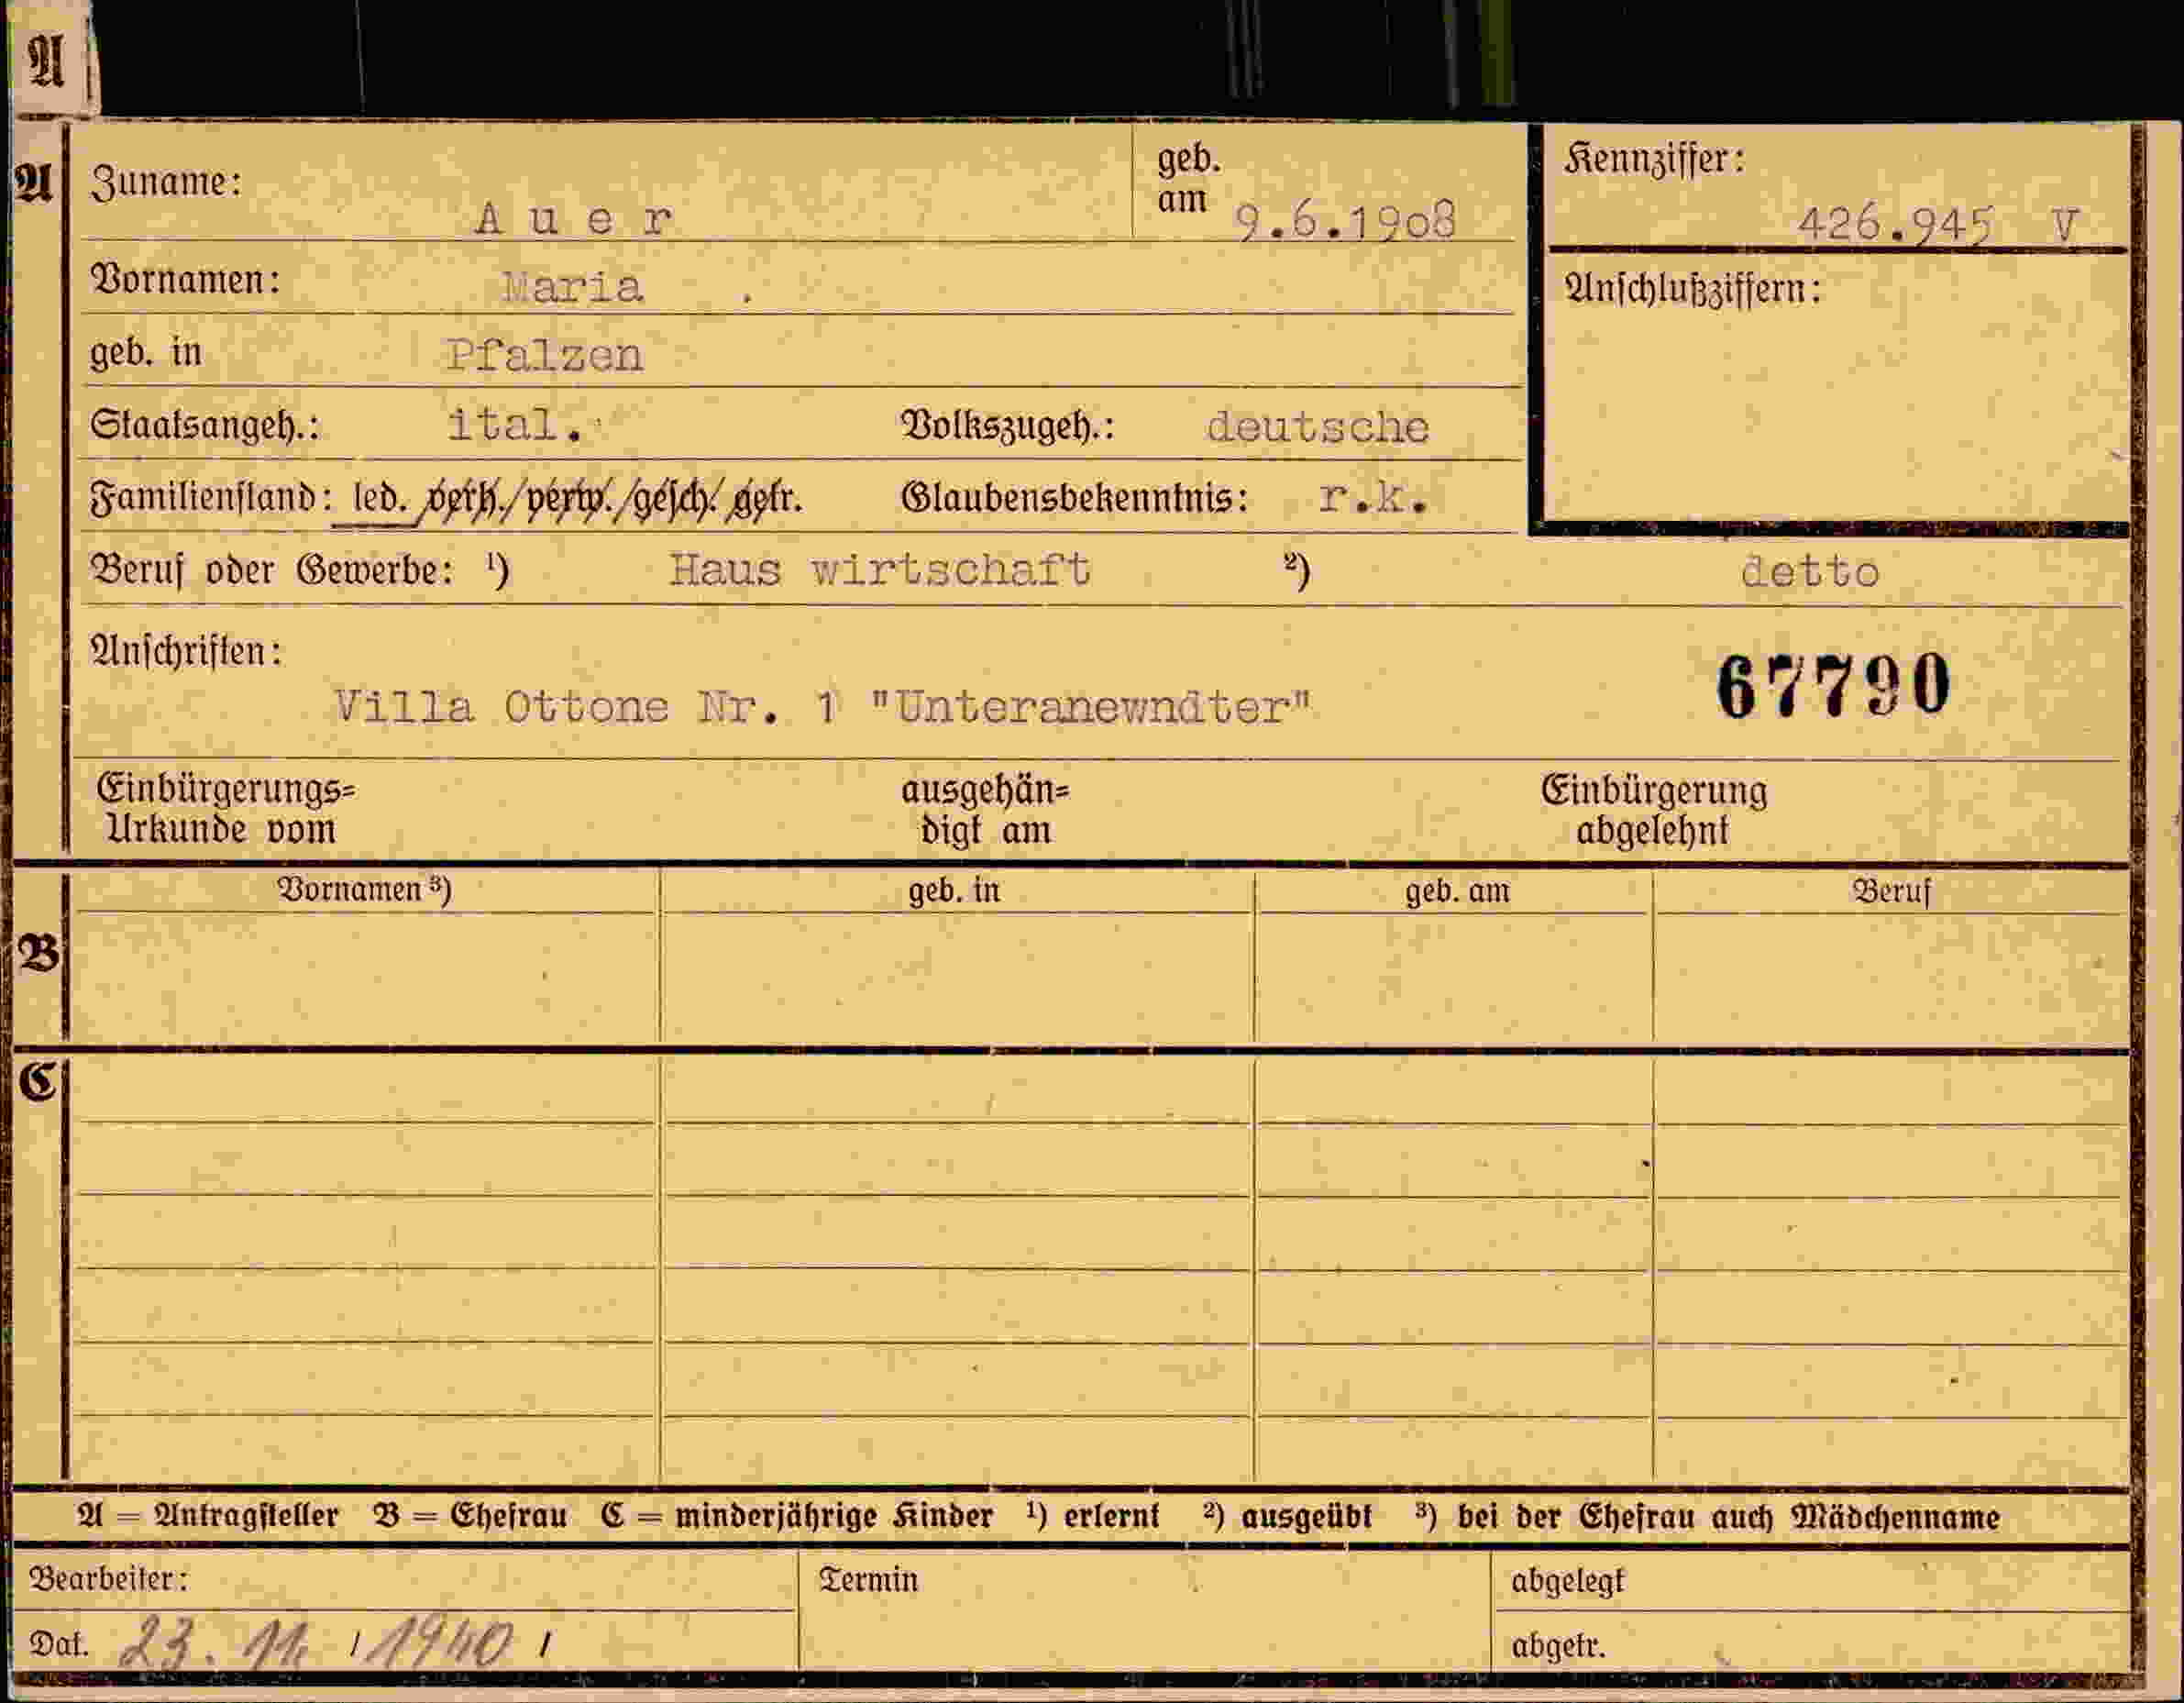 A
A
Zuname: Auer geb. am 9.6.1908 Kennziffer: 426.945 V
Vornamen: Maria . Anschlußziffern:
geb. in Pfalzen
Staatsangeh.: ital. Volkszugeh.: deutsche
Familienstand: led. verh./verw./gesch. getr. Glaubensbekenntnis: r.k.
Beruf oder Gewerbe: ¹) Haus wirtschaft ²) detto
Anschriften: 67790
Villa Ottone Nr. 1 "Unteranewndter"
Einbürgerungs= ausgehän= Einbürgerung
Urkunde vom digt am abgelehnt
Vornamen ³) geb. in geb. am Beruf
B
C
A = Antragsteller B = Ehefrau C = minderjährige Kinder ¹) erlernt ²) ausgeübt ³) bei der Ehefrau auch Mädchenname
Bearbeiter: Termin abgelegt
Dat. 23. 11. / 1940 / abgetr.